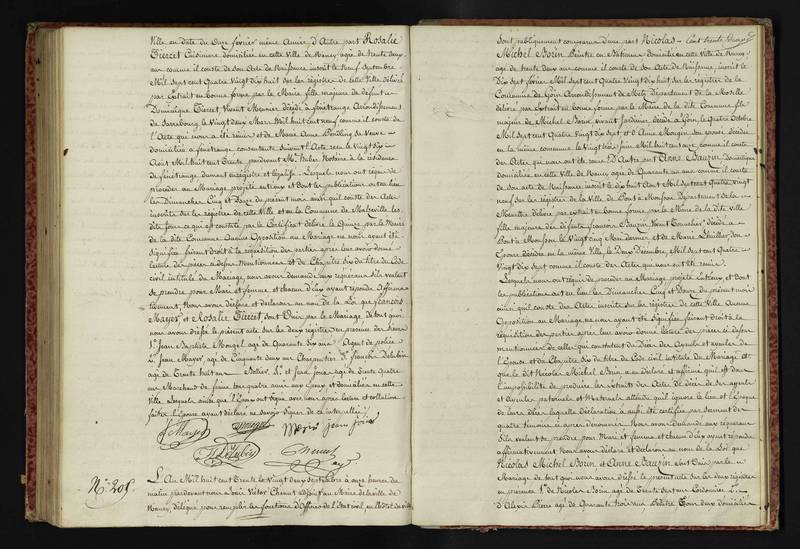 Ville en date du Onze février même Année, D'autre part Rosalie
Tierret Cuisinière domiciliée en cette Ville de Nancy âgée de trente deux
ans comme il conste de son Acte de Naissance inscrit le Neuf Septembre
Mil sept cent Quatre Vingt dix huit sur les registres de cette Ville délivré
par Extrait en bonne forme par le Maire, fille majeure de défunt
Dominique Tierret, Vivant Meunier décédé à fénétrange, Arrondissement
de Sarrebourg le Vingt deux Mars Mil huit cent neuf comme il conste de
l'Acte qui nous a été remis et de Marie Anne Sa Veuve
domiciliée à fénétrange, consentante suivant Acte reçu le Vingt Six
Août Mil huit cent Trente, pardevant Me huber, Notaire à la résidence
de fénétrange, dument enregistré et légalisé. Lesquels nous ont requis de
procéder au Mariage projeté entr'eux et dont les publications ont eu lieu
les Dimanches Cinq et Douze du présent mois ainsi qu'il conste des Actes
inscrits sur les registres de cette Ville et en la Commune de Malzéville les
dits jours ce qui est constaté par le Certificat délivré le Quinze par le Maire
de la dite Commune Aucune Opposition au Mariage ne nous ayant été
Signifiée faisant droit à la réquisition des parties après leur avoir donné
lecture des pièces ci dessus Mentionnées et du Chapitre Six du titre du Code
civil intitulé du Mariage, nous avons demandé aux requérans s'ils veulent
se prendre pour Mari et femme et chacun d'Eux ayant répondu Affirma
tivement, Nous avons déclaré et déclarons au nom de la Loi que François
Mayer et Rosalie Tierret Sont Unis par le Mariage, de tout quoi
nous avons dressé le présent acte sur les deux registres en présence des Sieurs
1°. Jean Baptiste Mongel âgé de Quarante Six ans, Agent de police
2°. Jean Mayer, âgé de Cinquante deux ans Charpentier 3°. françois Delubin
âgé de Trente huit ans Sellier 4°. et Jean Joire âgé de Trente Quatre
ans Marchand de farine tous quatre amis des Epoux, et domiciliés en cette
Ville Lesquels ainsi que l'Epoux ont signé avec nous après lecture et collation
faite, l'Epouse ayant déclaré ne savoir signer de ce interpellée
Mayer Mongel Jean Joire
Delubin
Chenut
N°. 208.
L'An Mil huit cent Trente le Vingt deux Septembre à onze heures du
matin pardevant nous Victor Chenut adjoint au Maire de la Ville de
Nancy, délégué pour remplir les fonctions d'Officier de l'Etat civil, en l'hôtel de Ville
Cent trente
Sont publiquement comparus d'une part Nicolas
Michel Borin Peintre en Bâtimens domicilié en cette Ville de Nancy
âgé de trente deux ans comme il conste de son Acte de Naissance, inscrit le
Dix Sept février Mil Sept cent Quatre Vingt dix huit sur les registres de la
Commune de Arrondissement de Metz, Département de la Moselle
délivré par extrait en bonne forme par le Maire de la dite Commune fils
majeur de Michel Borin, vivant Jardinier, décédé à le Quatre Octobre
Mil Sept cent Quatre Vingt dix Sept et d'Anne son épouse décédée
en la même commune, le Vingt Juin Mil huit cent comme il conste
des Actes qui nous ont été remis. D'Autre part Anne Bauzin Domestique
domiciliée en cette Ville de Nancy âgée de Quarante un ans comme il conste
de son acte de Naissance inscrit le dix huit Août Mil Sept cent Quatre vingt
neuf sur les registres de la Ville de Pont à Mousson Département de la
Meurthe délivré par extrait en bonne forme par le Maire de la dite Ville
fille majeure des défunts françois Bauzin, vivant Tonnelier décédé à
Pont à Mousson le Vingt Cinq et de Marie son
Epouse décédée en la même Ville, le Deux Décembre, Mil Sept cent Quatre
Vingt dix Sept comme il conste des Actes qui nous ont été remis.
Lesquels nous ont requis de procéder au Mariage projeté Entr'eux et dont
les publications ont eu lieu les Dimanches Cinq et Douze du présent mois
ainsi qu'il conste des Actes inscrits sur les registres de cette Ville Aucune
Opposition au Mariage ne nous ayant été Signifiée, faisant droit à la
réquisition des parties après leur avoir donné lecture des pièces ci dessus
mentionnées de celles qui constatent du Décès des Ayeuls et ayeules de
l'Epouse et du Chapitre Six du titre du Code civil intitulé du Mariage et
que le dit Nicolas Michel Borin a déclaré et affirmé qu'il est dans
l'impossibilité de produire les extraits des Actes de décès de ses ayeuls
et Ayeules paternels et Maternels attendu qu'il ignore le lieu et l'époque
de leurs décès laquelle déclaration a aussi été certifiée par serment des
quatre témoins ci après dénommés. Nous avons demandé aux requérans
S'ils veulent se prendre pour Mari et femme et chacun d'Eux ayant répondu
affirmativement, Nous avons déclaré et déclarons au nom de la Loi que
Nicolas Michel Borin et Anne Bauzin Sont Unis par le
Mariage de tout quoi nous avons dressé le présent acte Sur les deux registres
en présence 1°. de Nicolas Borin âgé de Trente Sept ans Cordonnier 2°.
d'Alexis Pierre âgé de Quarante trois ans Tous deux domiciliés